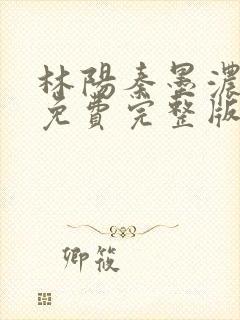 林陽秦墨濃
免費完整版
卿筱